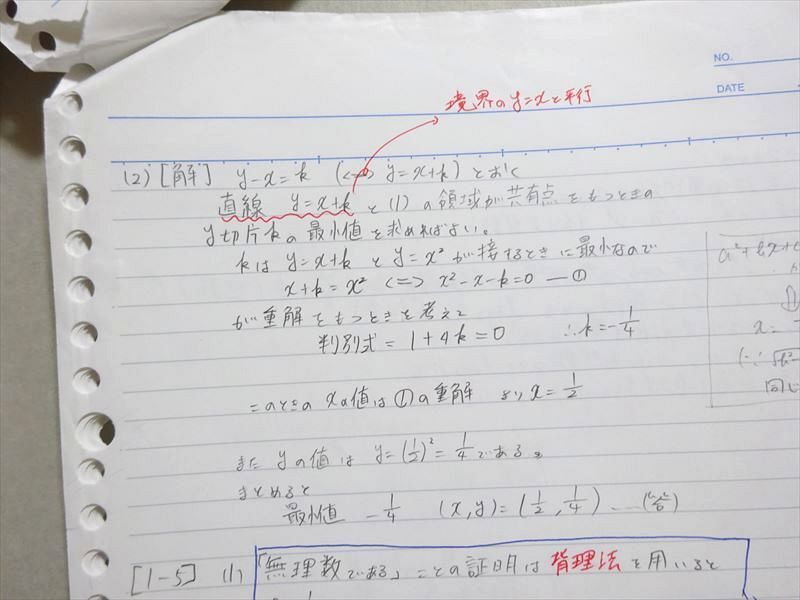 NO.
DATE
境界のy=xと平行
(2) [解] y-x=k (⇔ y=x+k) とおく
直線 y=x+k と(1)の領域が共有点をもつときの
y切片kの最小値を求めればよい。
kは y=x+k と y=x² が接するときに最小なので
x+k=x² ⇔ x²-x-k=0 ―①
が重解をもつときを考えて
判別式=1+4k=0 ∴k=-1/4
このときのxの値は①の重解 より x=1/2
また yの値は y=(1/2)²=1/4である。
まとめると
最小値 -1/4 (x,y)=(1/2,1/4) …(答)
[1-5] (1) 「無理数である」ことの証明は背理法を用いると
x=
同じ